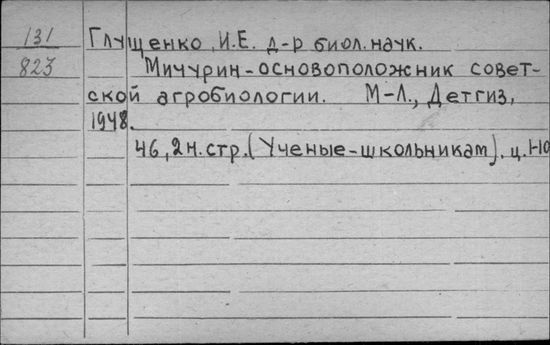 131 Глущенко, И.Е. д-р биол. наук.
823 Мичурин-основоположник совет-
ской агробиологии. М-Л., Детгиз,
1948.
46, 2 н. стр. (Ученые-школьникам). ц. 1-10